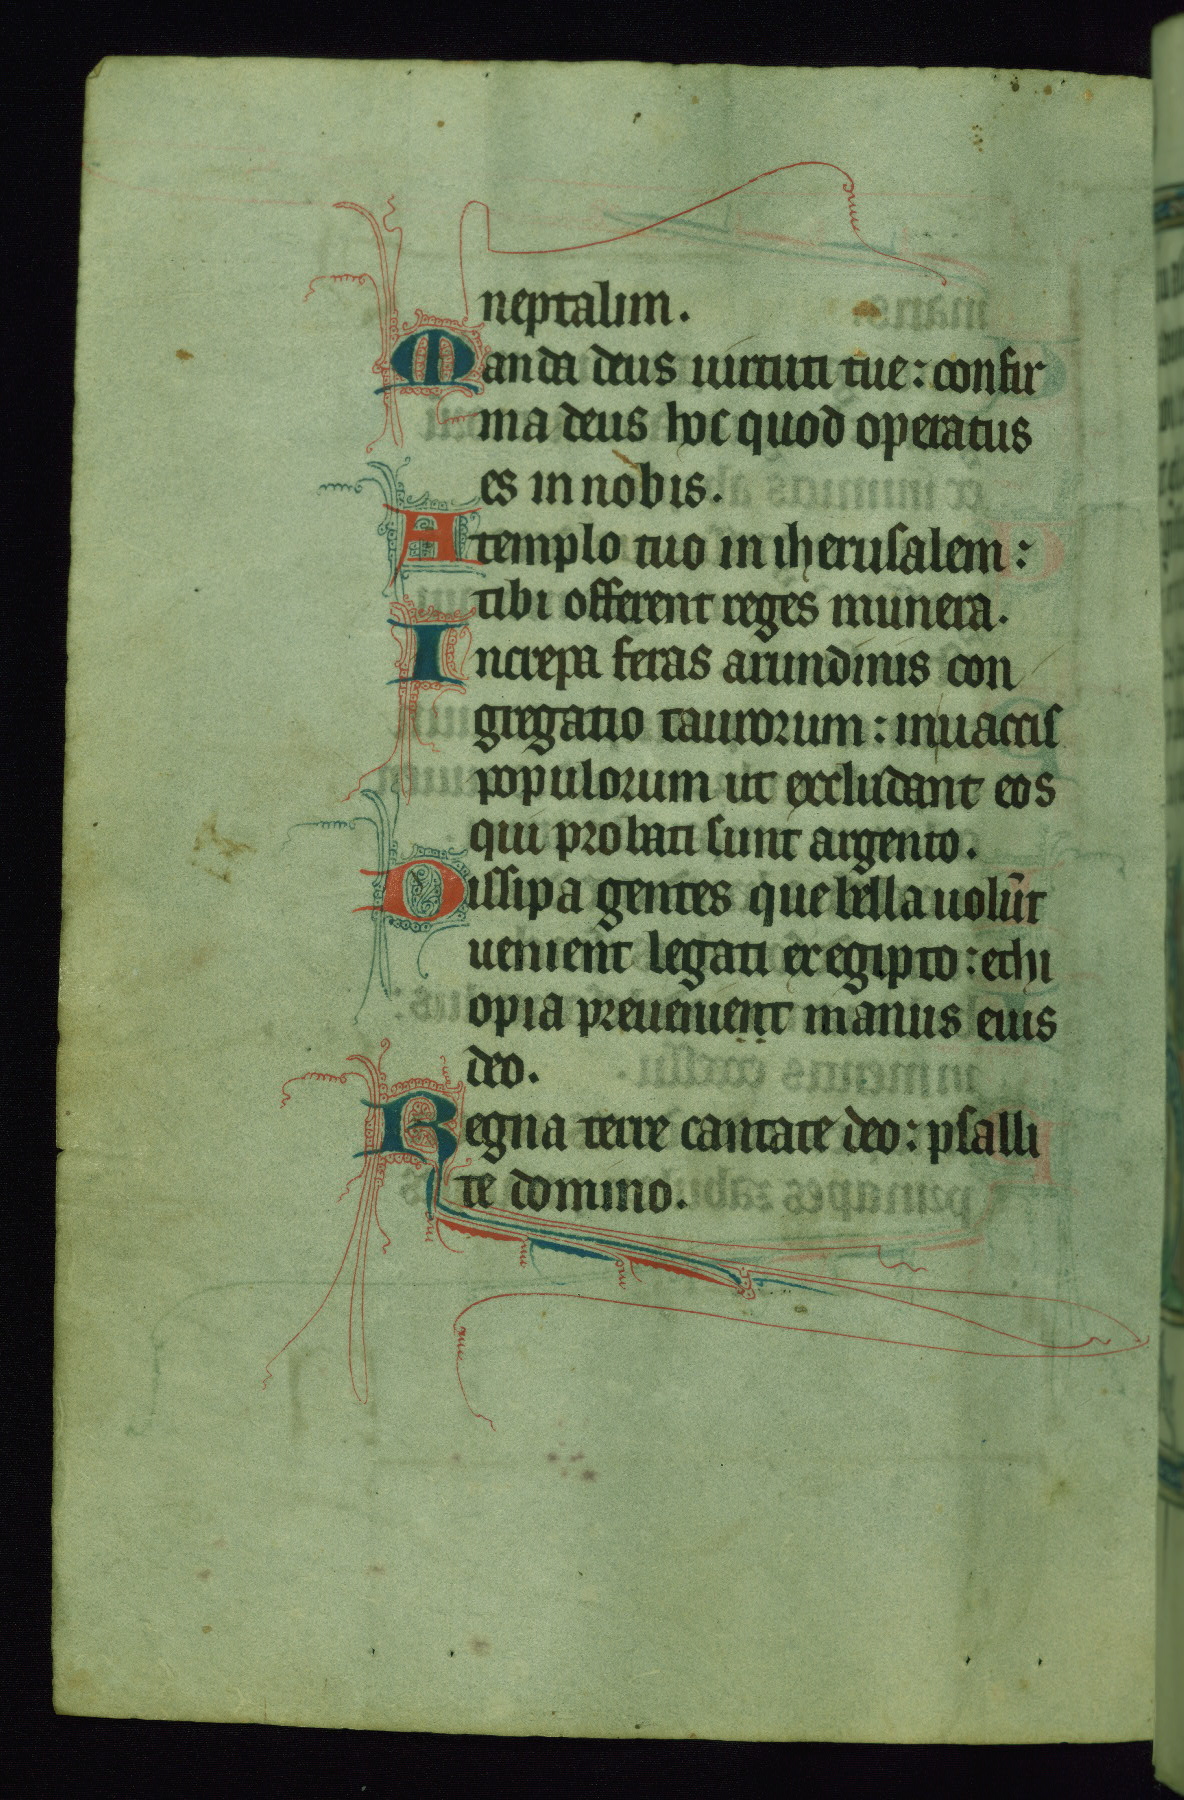 neptalim.
Manda deus uirtuti tue: confir
ma deus hoc quod operatus
es in nobis.
A templo tuo in iherusalem:
tibi offerent reges munera.
Increpa feras arundinis con
gregatio taurorum: inuaccis
populorum ut excludant eos
qui probati sunt argento.
Dissipa gentes que bella uolūt
uenient legati ex egipto: ethi
opia preuenient manus eius
deo.
Regna terre cantate deo: psalli
te domino.